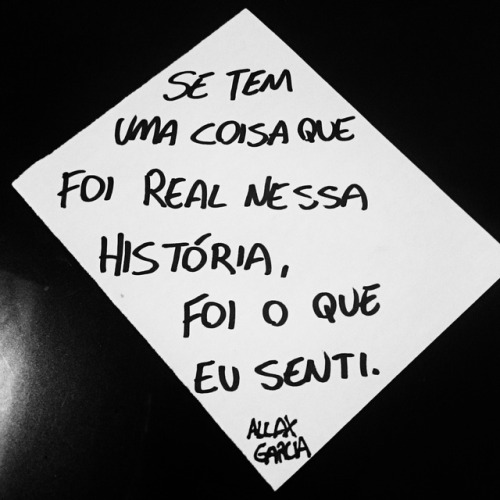 SE TEM
UMA COISA QUE
FOI REAL NESSA
HISTÓRIA,
FOI O QUE
EU SENTI.
ALLAX
GARCIA